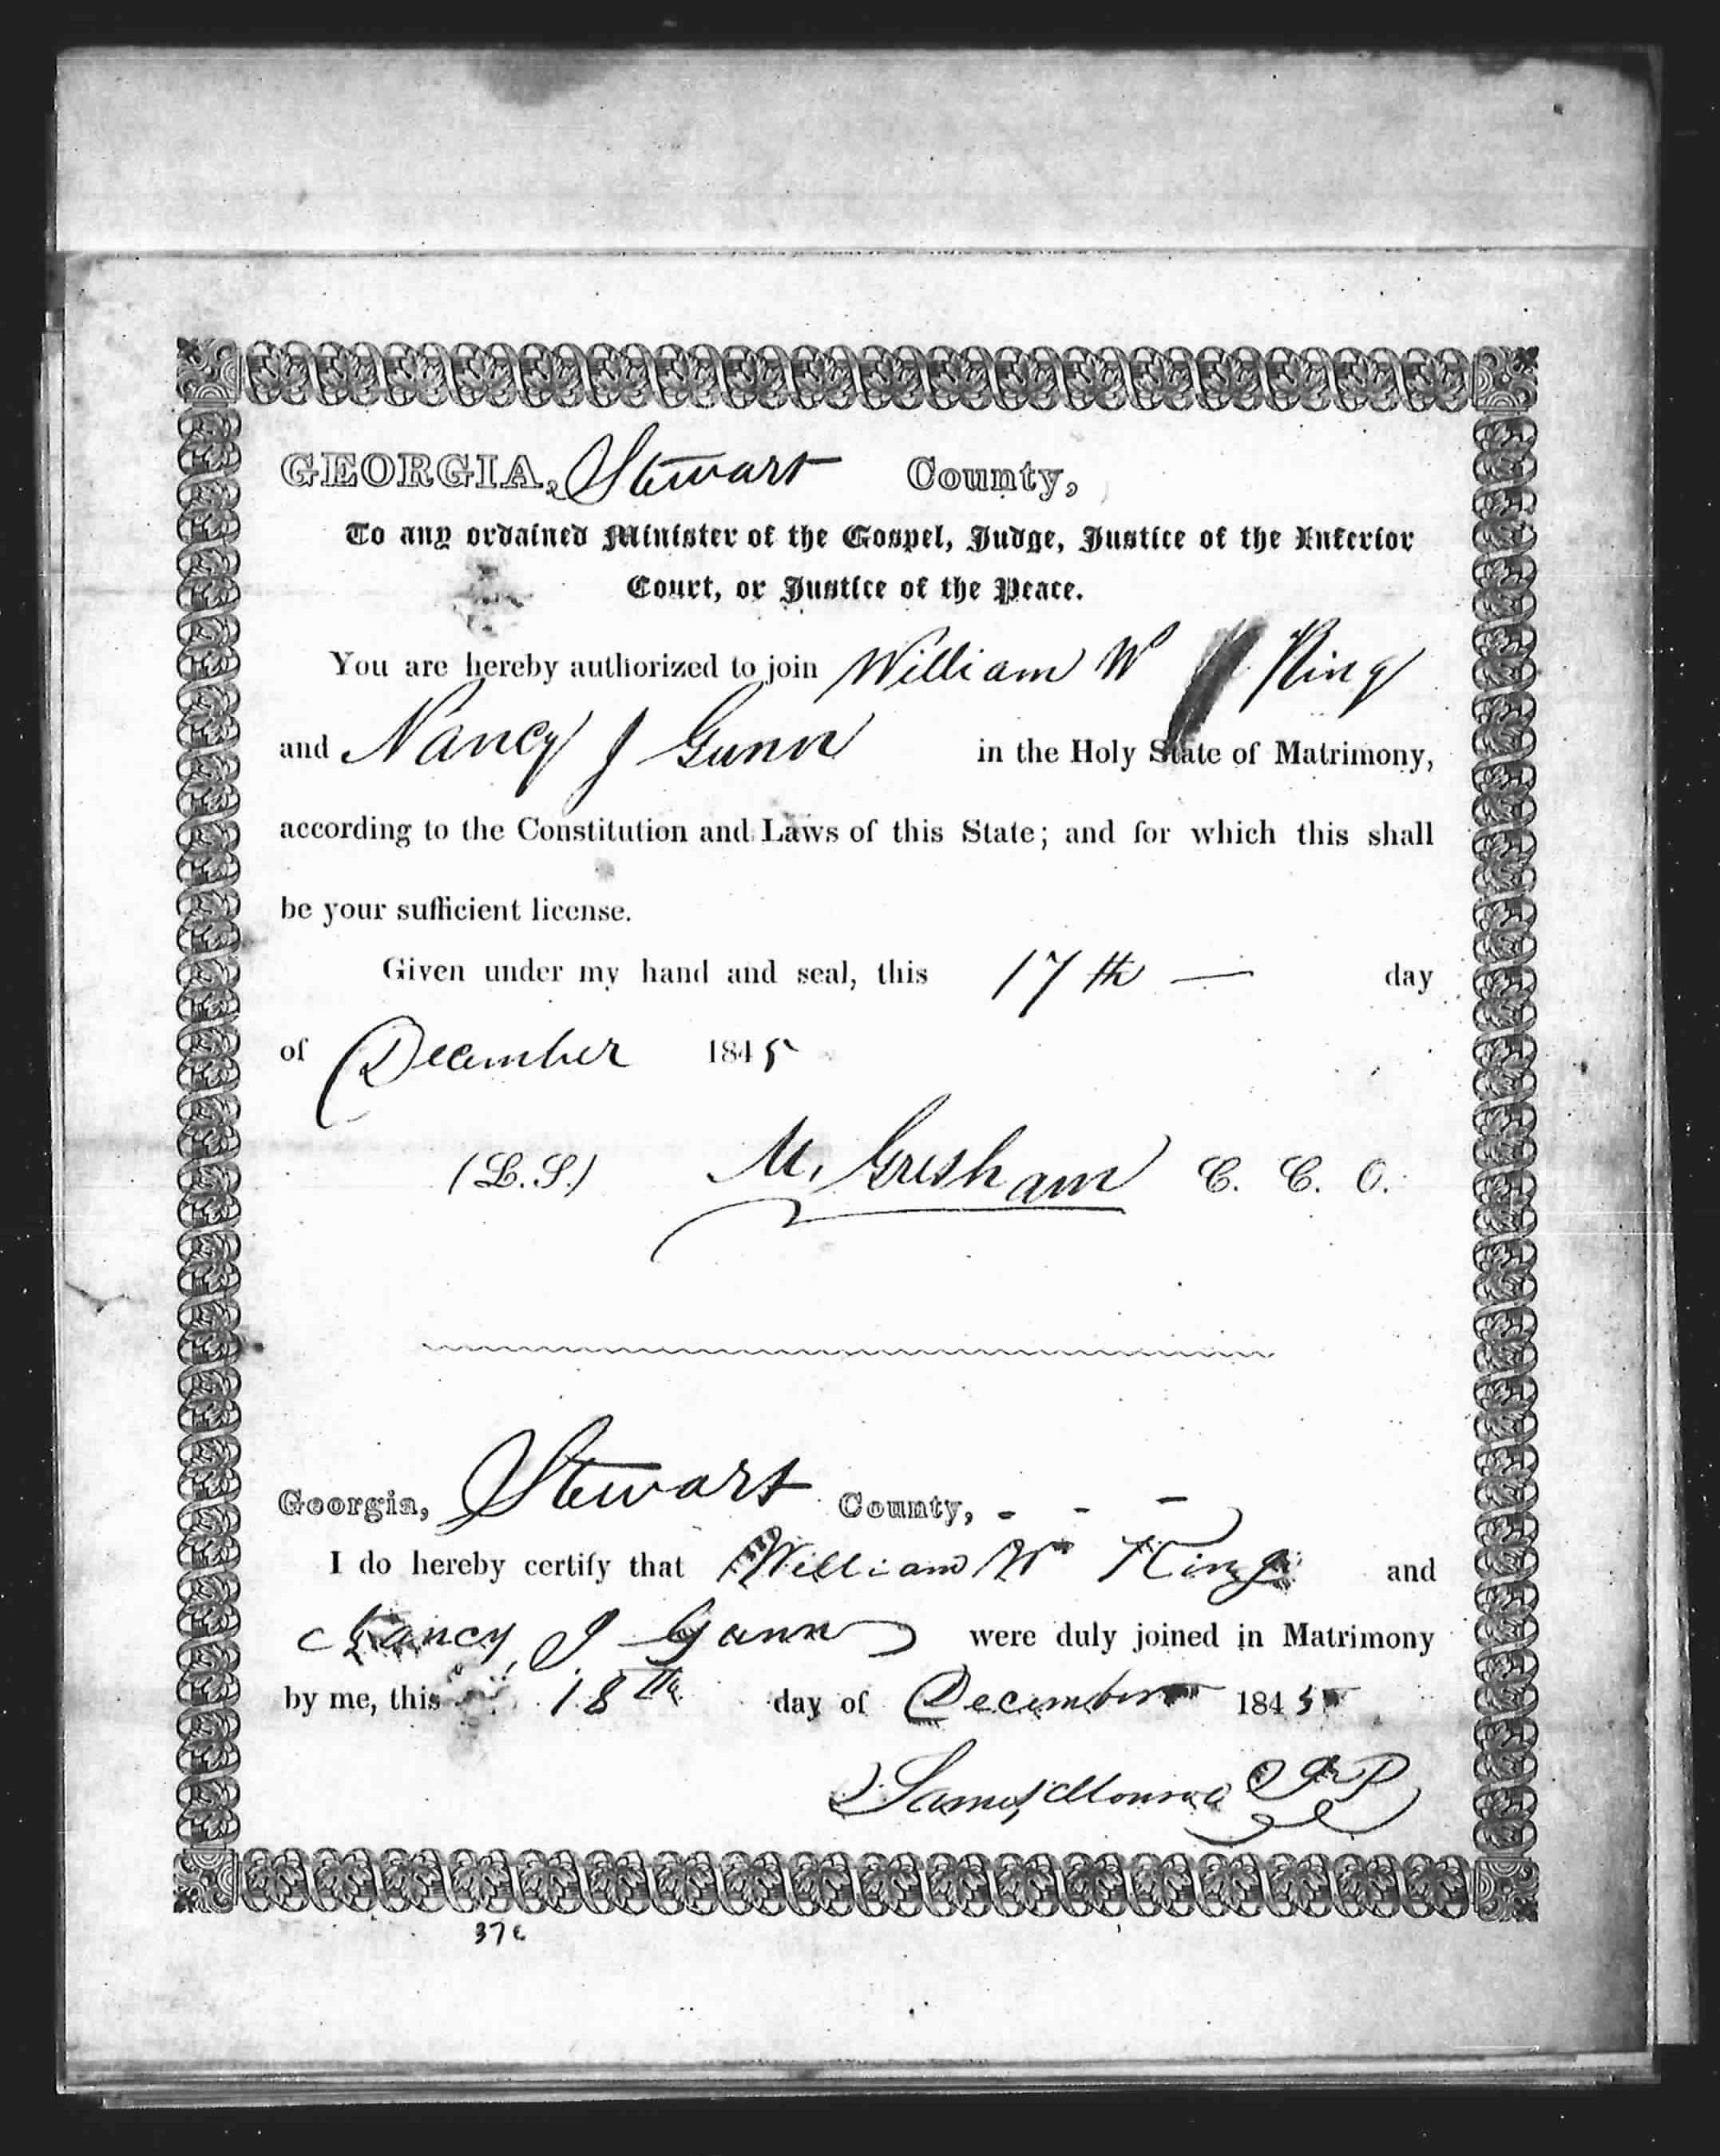 GEORGIA, Stewart County,
To any ordained Minister of the Gospel, Judge, Justice of the Inferior
Court, or Justice of the Peace.
You are hereby authorized to join William W King
and Nancy J Gunn in the Holy State of Matrimony,
according to the Constitution and Laws of this State; and for which this shall
be your sufficient license.
Given under my hand and seal, this 17th — day
of December 1845
(L.S.) M. Gresham C. C. O.
Georgia, Stewart County, - - -
I do hereby certify that William W King and
Nancy J Gann were duly joined in Matrimony
by me, this 18th day of December 1845
James Monroe J P